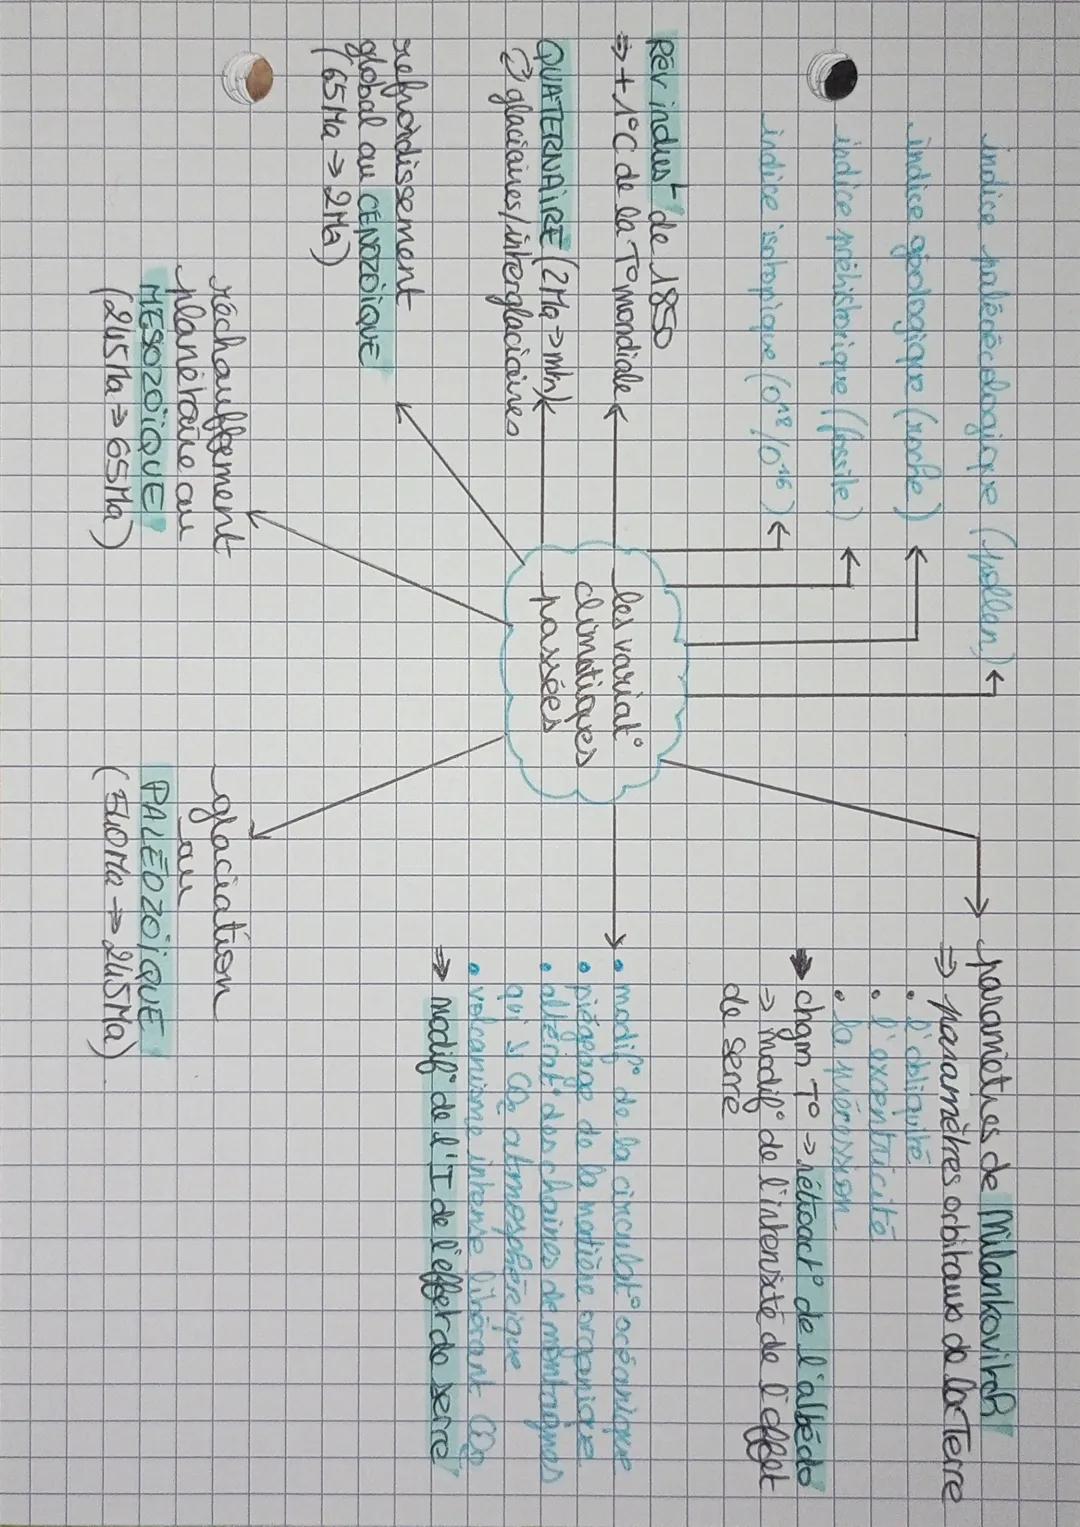 indice paléoécologique (pollen)
indice géologique (roche)
indice préhistorique (fossile)
indice isotopique (O¹⁸/O¹⁶)
Rév indust de 1850
⇒ + 1°C de la T° mondiale
QUATERNAIRE (2Ma → mtn)
glaciaires/interglaciaires
refroidissement
global au CENOZOÏQUE
(65Ma → 2Ma)
réchauffement
planétaire au
MESOZOÏQUE
(245Ma → 65Ma)
les variat°
climatiques
passées
glaciation
au
PALÉOZOÏQUE
(540Ma → 245Ma)
paramètres de Milankovitch
⇒ paramètres orbitaux de la Terre
• l'obliquité
• l'excentricité
• la précession
➔ chgm T° → rétroact° de l'albédo
⇒ modif° de l'intensité de l'effet
de serre
• modif° de la circulat° océanique
• piégeage de la matière organique
• altérat° des chaines de montagnes
qui ↘ CO₂ atmosphérique
• volcanisme intense libérant CO₂
⇒ modif° de l'I de l'effet de serre